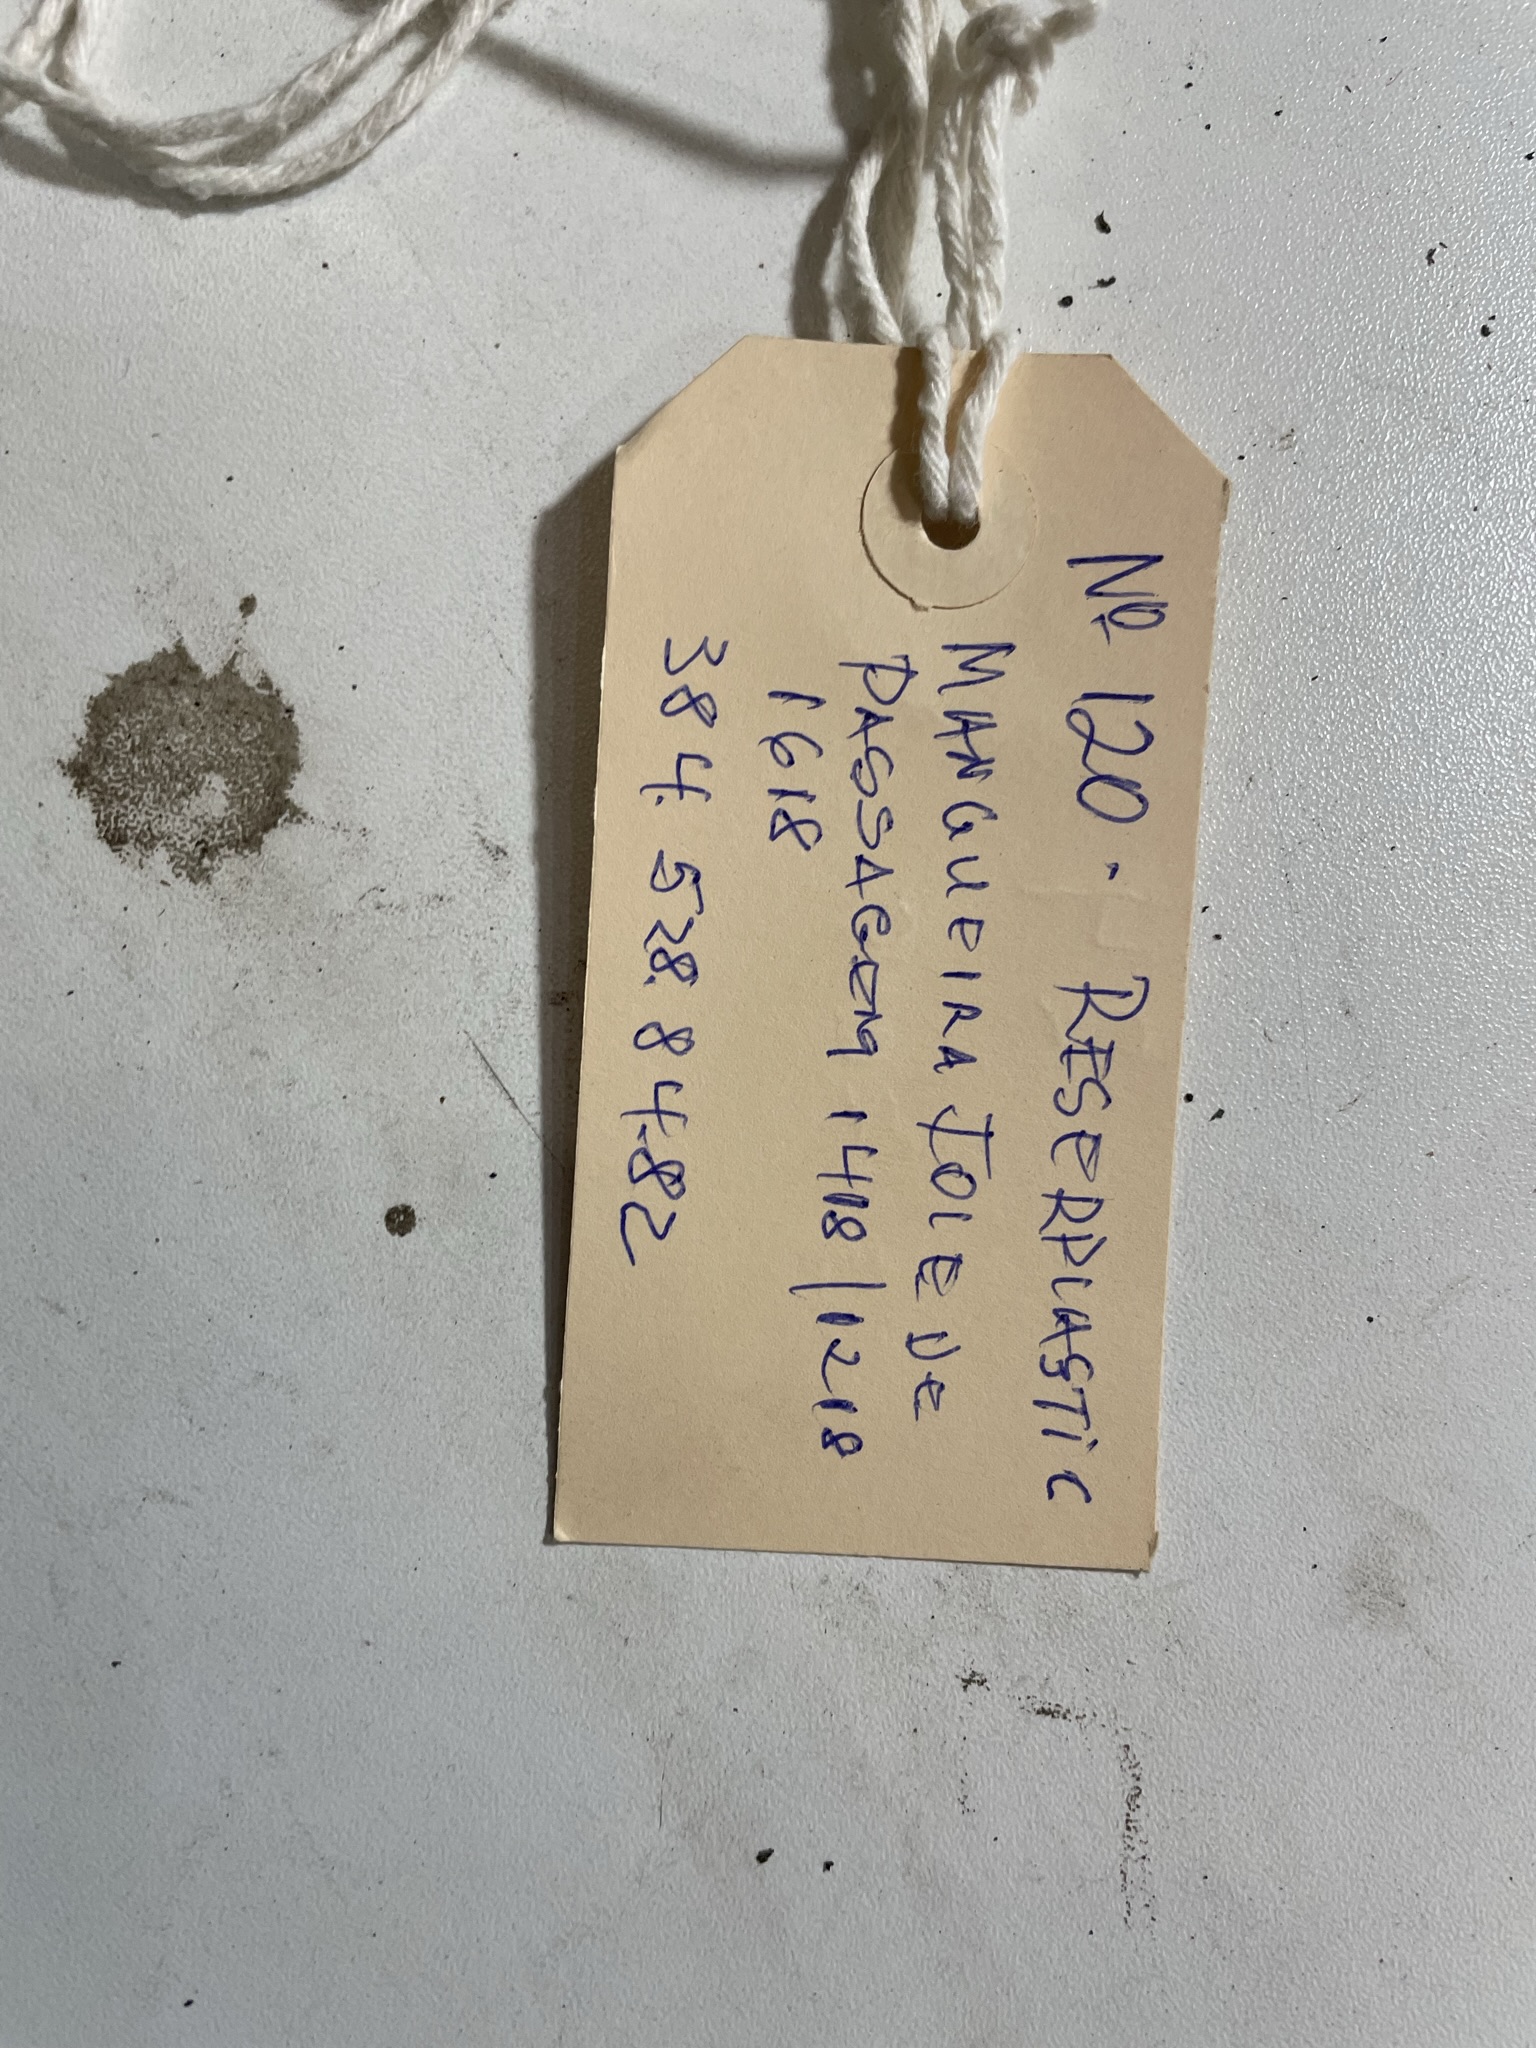 Nº 120 - RESERPLASTIC
MANGUEIRA JOIEVE
PASSAGEM 1418/1218
1618
384. 528. 84-82